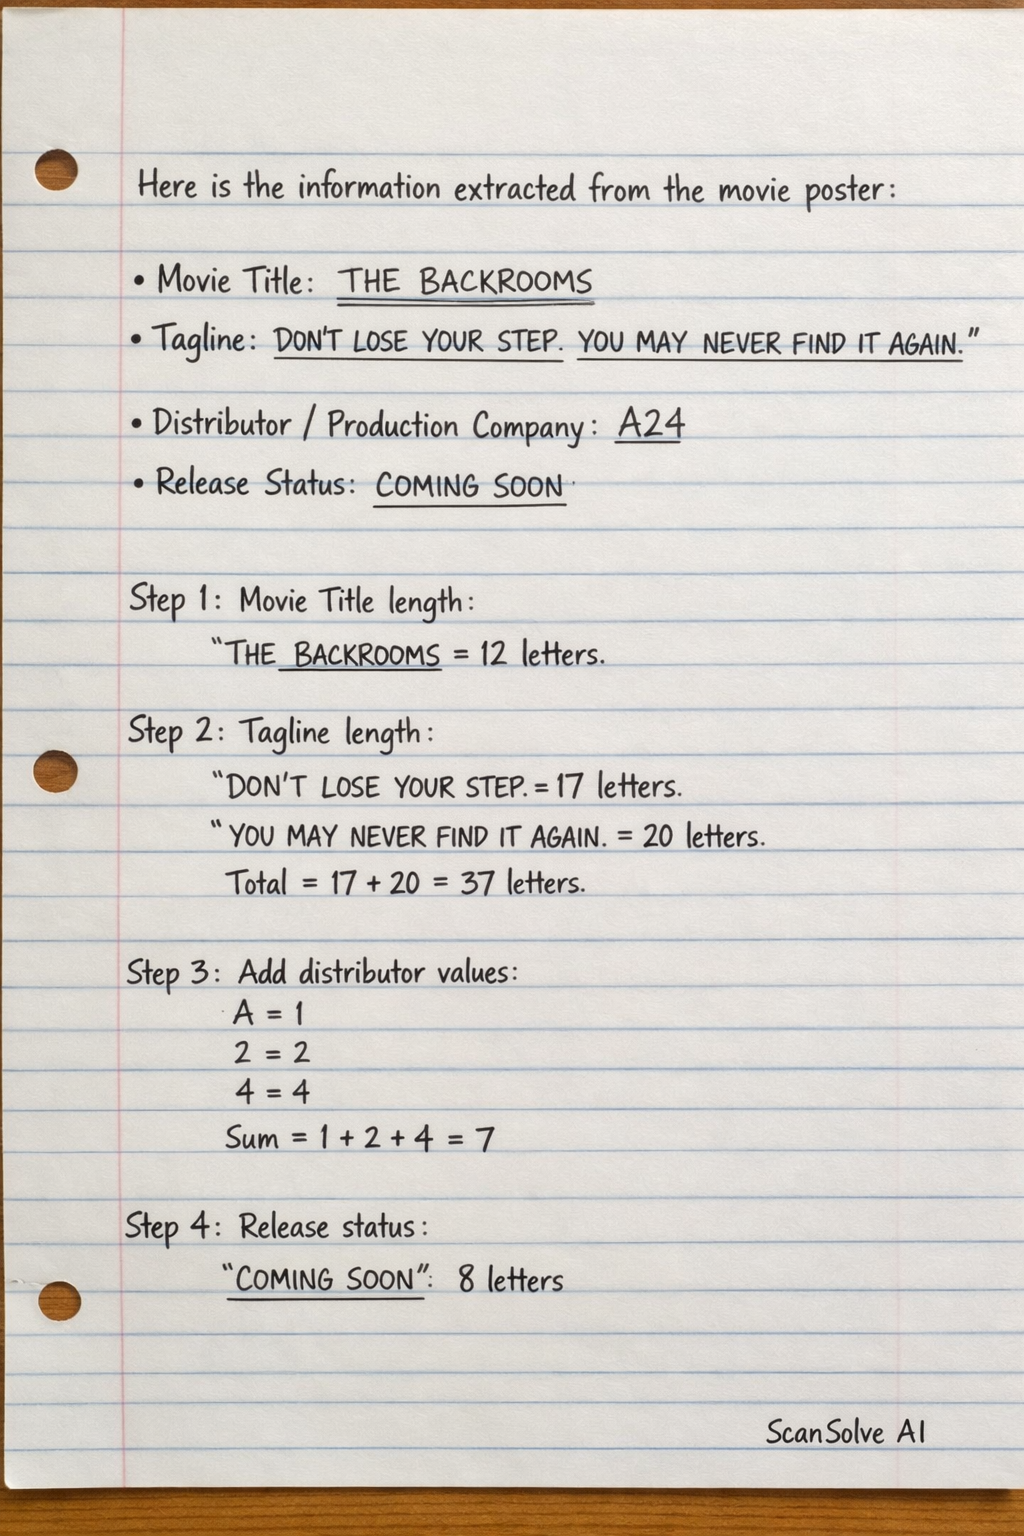 Here is the information extracted from the movie poster:
• Movie Title: THE BACKROOMS
• Tagline: DON'T LOSE YOUR STEP. YOU MAY NEVER FIND IT AGAIN."
• Distributor / Production Company: A24
• Release Status: COMING SOON
Step 1: Movie Title length:
"THE BACKROOMS = 12 letters.
Step 2: Tagline length:
"DON'T LOSE YOUR STEP. = 17 letters.
"YOU MAY NEVER FIND IT AGAIN. = 20 letters.
Total = 17 + 20 = 37 letters.
Step 3: Add distributor values:
A = 1
2 = 2
4 = 4
Sum = 1 + 2 + 4 = 7
Step 4: Release status:
"COMING SOON": 8 letters
ScanSolve AI